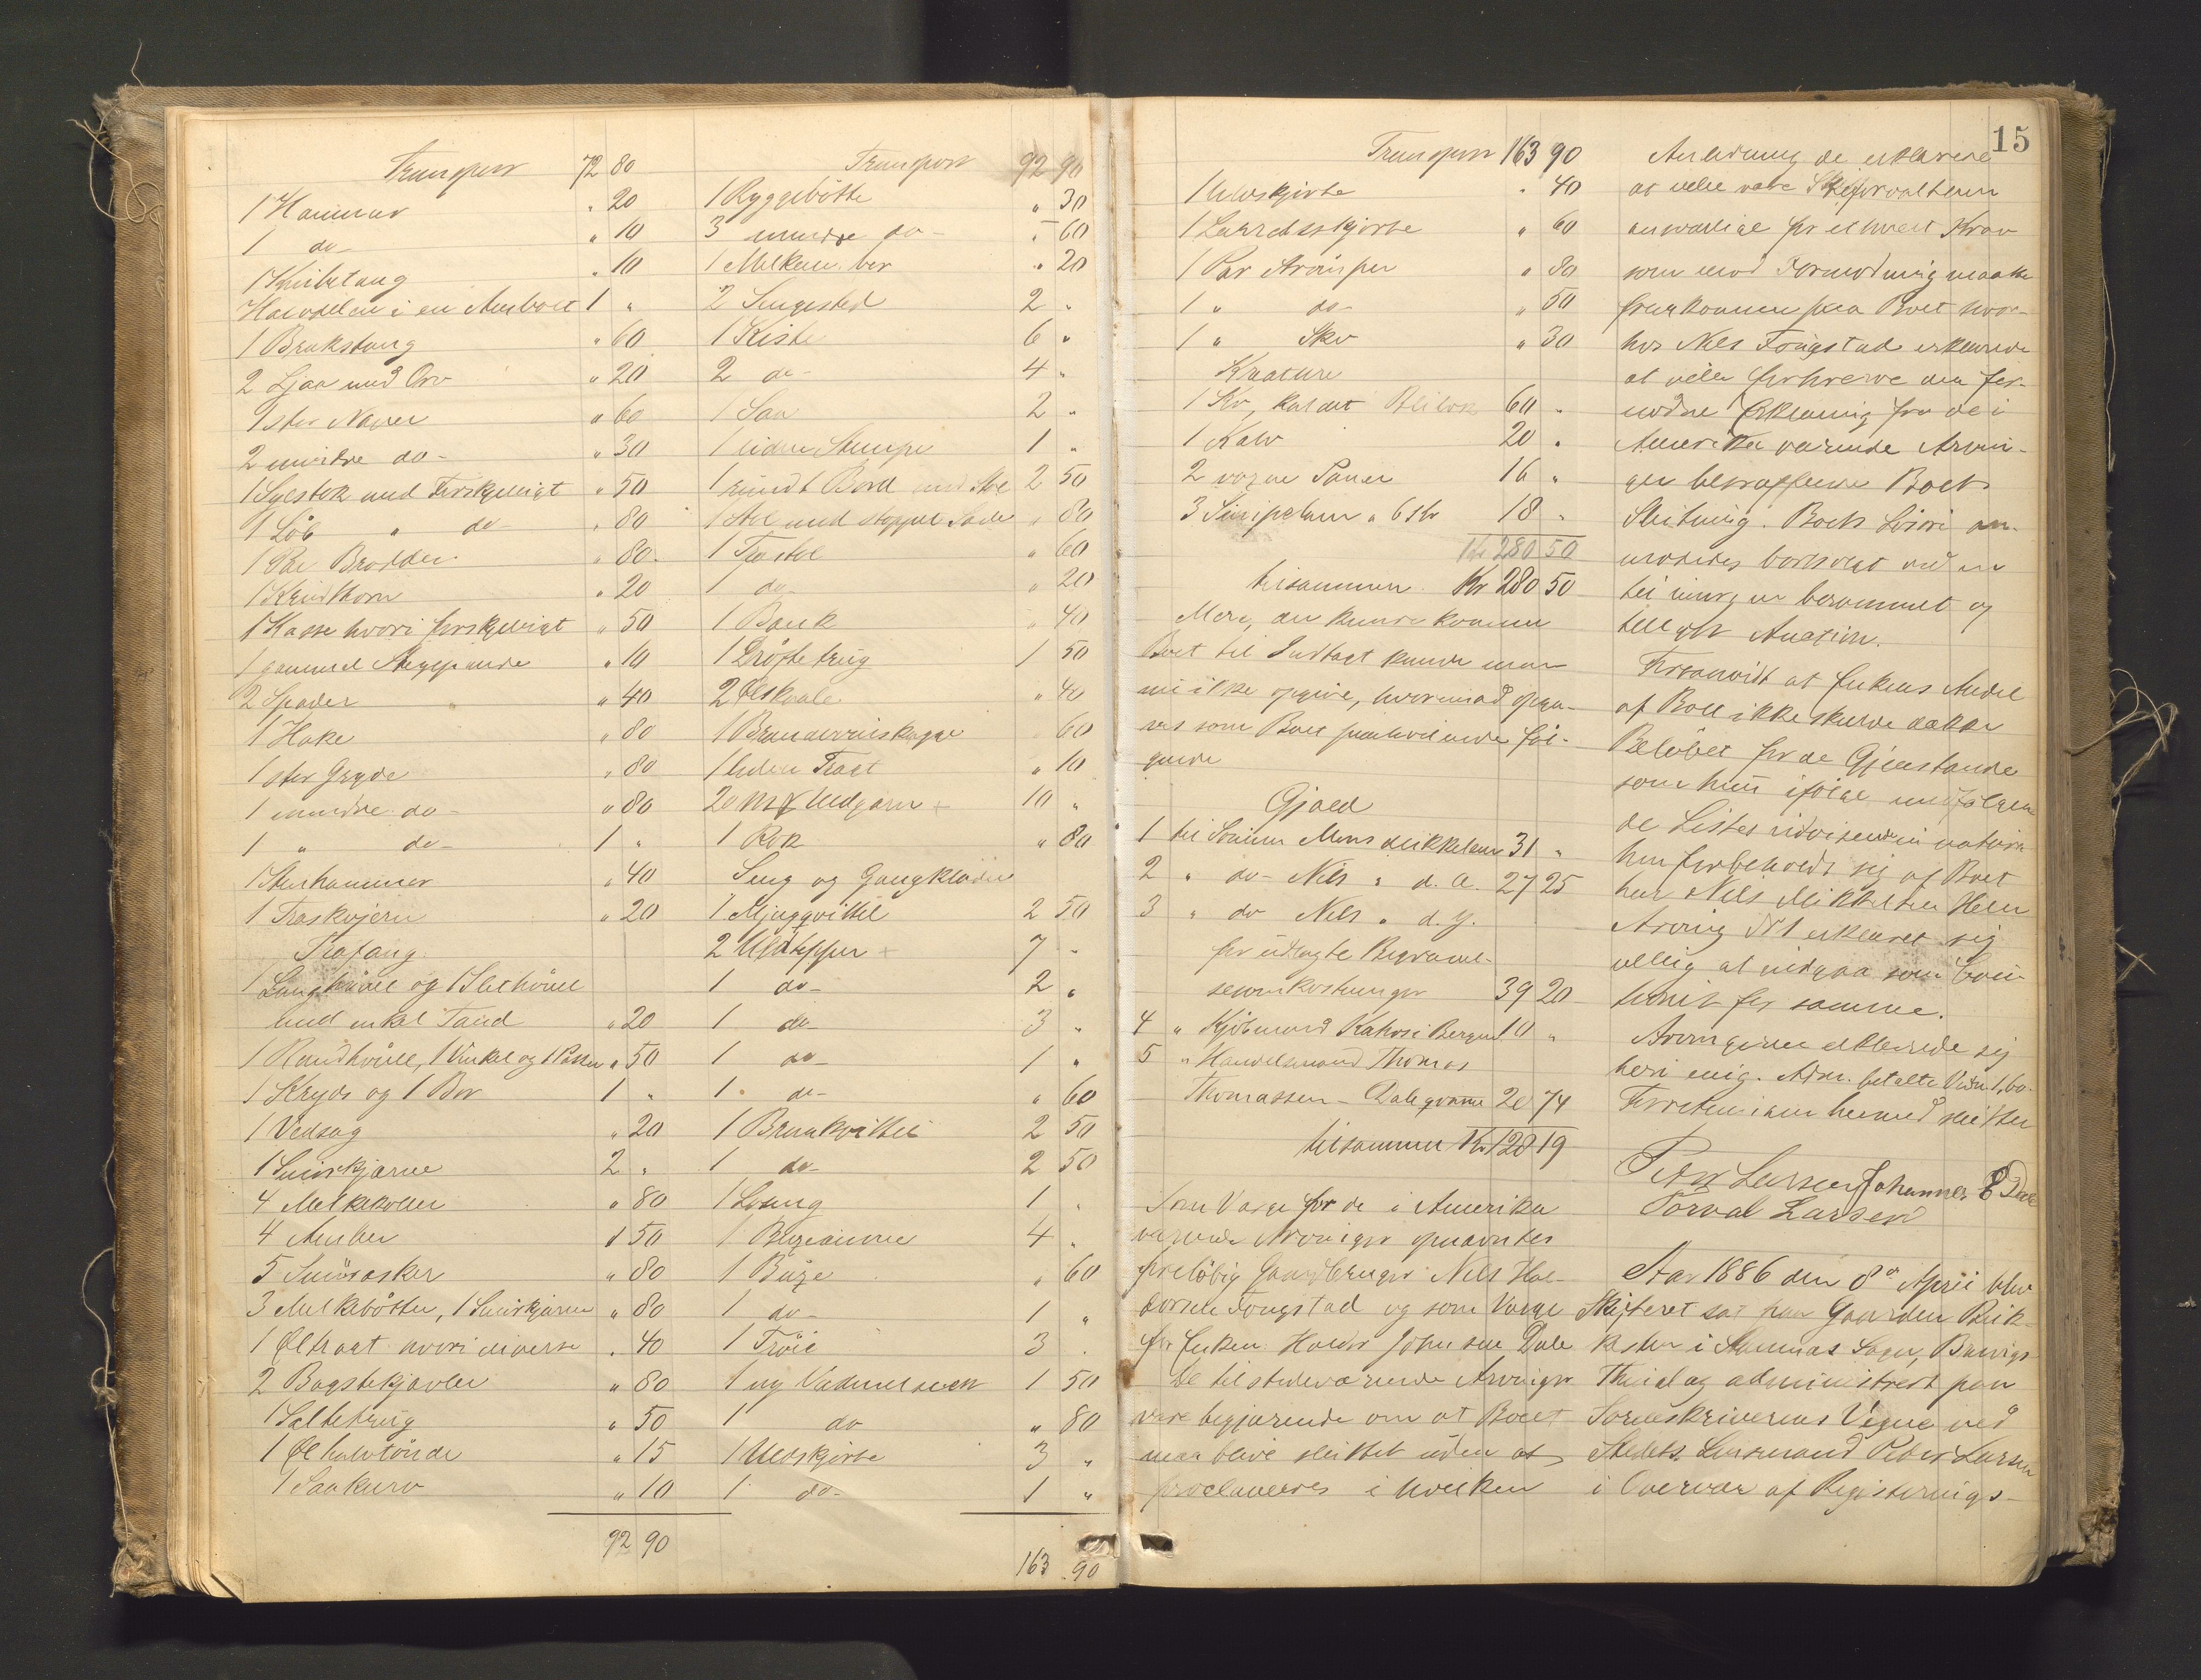 Transport 72 80
1 Hammar " 20
1 do- " 10
1 Knibetang " 10
Halvdelen i en Ambolt 1 "
1 Brækstang " 60
2 Ljaa med Orv " 20
1 stor Naver " 60
2 mindre do- " 30
1 Systok med Forskjelligt " 50
1 Löb " do- " 80
1 Par Brodder " 80
1 Krudthorn " 20
1 Kasse hvori forskjelligt " 50
1 gammel Steg pande " 10
2 Spader " 40
1 Hake " 80
1 stor Gryde " 80
1 mindre do- " 80
1 " do- 1 "
1 Stenhammer " 40
1 Traskojern " 20
Trafang
1 Langhövel og 1 Slethövel
med enkel Tand " 20
1 Rundhövel, 1 Vinkel og 1 Passer " 50
1 Kryds og 1 Bor 1 "
1 Vedsag " 20
1 Smörkjærne 2 "
4 Melkekoller " 80
4 Amber " 50
5 Smöræsker " 80
3 Melkebötter, 1 Smörkjærne " 80
1 Öltragt hvori diverse " 40
2 Bagstekjævler " 80
1 Saltetrug " 50
1 Öl halvtönde " 15
1 Saakurv " 10
92 90
Transport 92 90
1 Ryggebötte " 30
3 mindre do- " 60
1 Melkeu ber " 20
2 Sengested 2 "
1 Kiste 6 "
2 do- 4 "
1 Saa 2 "
1 liden Stampe 1 "
1 rundt Bord med Stol 2 50
1 Stol med stoppet Sæde " 80
1 Træstol " 60
1 do- " 20
1 Bænk " 40
1 Dröftetrug 1 50
2 Ölskaale " 40
1 Brændevinskagge 60
1 liden Tragt " 10
20 Mk Uldgarn + 10 "
1 Rok " 80
Seng og Gangklæder
1 Mjuggvittel 2 50
2 Uldtepper + 7 -
1 do- 2 "
1 do- 3 "
1 do- 1 "
1 do- " 60
1 Brunkvittel 2 50
1 do- 2 50
1 Loung 1 "
1 4 "
1 Buxe " 60
1 do- 1 "
1 Tröie 3 "
1 ny Vadmelsvest 1 50
1 do " 80
1 Uldskjorte 3 "
1 do- 1 "
163 90
15
Transport 163 90
1 Uldskjorte " 40
1 Lærredsskjorte " 60
1 Par Strömper " 80
1 " do- " 50
1 " Sko " 30
Kreature
1 Ko, kaldet 60 "
1 Kalv 20 "
2 voxne Sauer 16 "
3 " 6 Kr 18 "
Kr 280 50
tilsammen Kr 280 50
Mere, der kunde komme
Boet til Indtægt kunde man
nu ikke opgive, hvorimod opga-
ves som Boet paahvilende föl-
gende
Gjæld
1 til Sönnen Mons Mikkelsen 31 "
2 " do- Nils " d. æ. 27 25
3 " do Nils " d. y.
for udlagte Begravel-
sesomkostninger 39 20
4 " Kjöbmand i Bergen 10 "
5 " Handelsmand Thomas
Thomassen - 20 74
tilsammen Kr 128 19
Som Værge for de i Amerika
værende Arvinger opnævntes
foreløbig Gaardbruger Nils Hal-
dorsen Fougstad og som Værge
for Enken Haldor Johnsen Dale
De tilstedeværende Arvinger
vare begjærende om at Boet
maa blive sluttet uden at
proclameres i hvilken
Anledning de erklærede
at ville være Skifteforvalteren
ansvarlige for ethvert Krav
som mod Formodning maatte
fremkomme paa Boet hvor-
hos Nils Fougstad erklærede
at ville forhverve den for-
nödne Erklæring fra de i
Amerika værende Arvin-
ger betræffende Boets
Slutning. Boets Lösöre an-
modedes bortsolgt ved en
til imorgen berammet og
tillyst Auction.
Forsaavidt at Enkens Andel
af Boet ikke skulde dække
Belöbet for de Gjenstande
som hun ifölge medfölgen-
de Listes udvisende in natura
har forbeholdt sig af Boet
har Nils Mikkelsen
Arving N 1 erklæret sig
villig at indgaa som Cau-
tionist for samme.
Arvingerne erklærede sig
heri enig. Adm. betalte Vidn 1,60.
Forretningen hermed sluttet
Peter Larsen Johannes E Dale
Torval Larsen
Aar 1886 den 8de April blev
Skifteret sat paa Gaarden
i Hammers Sogn,
Thinglag administrert paa
Sorenskriverens Vegne ved
Stedets Lensmand Peder Larsen
i Overvær af Registrerings-